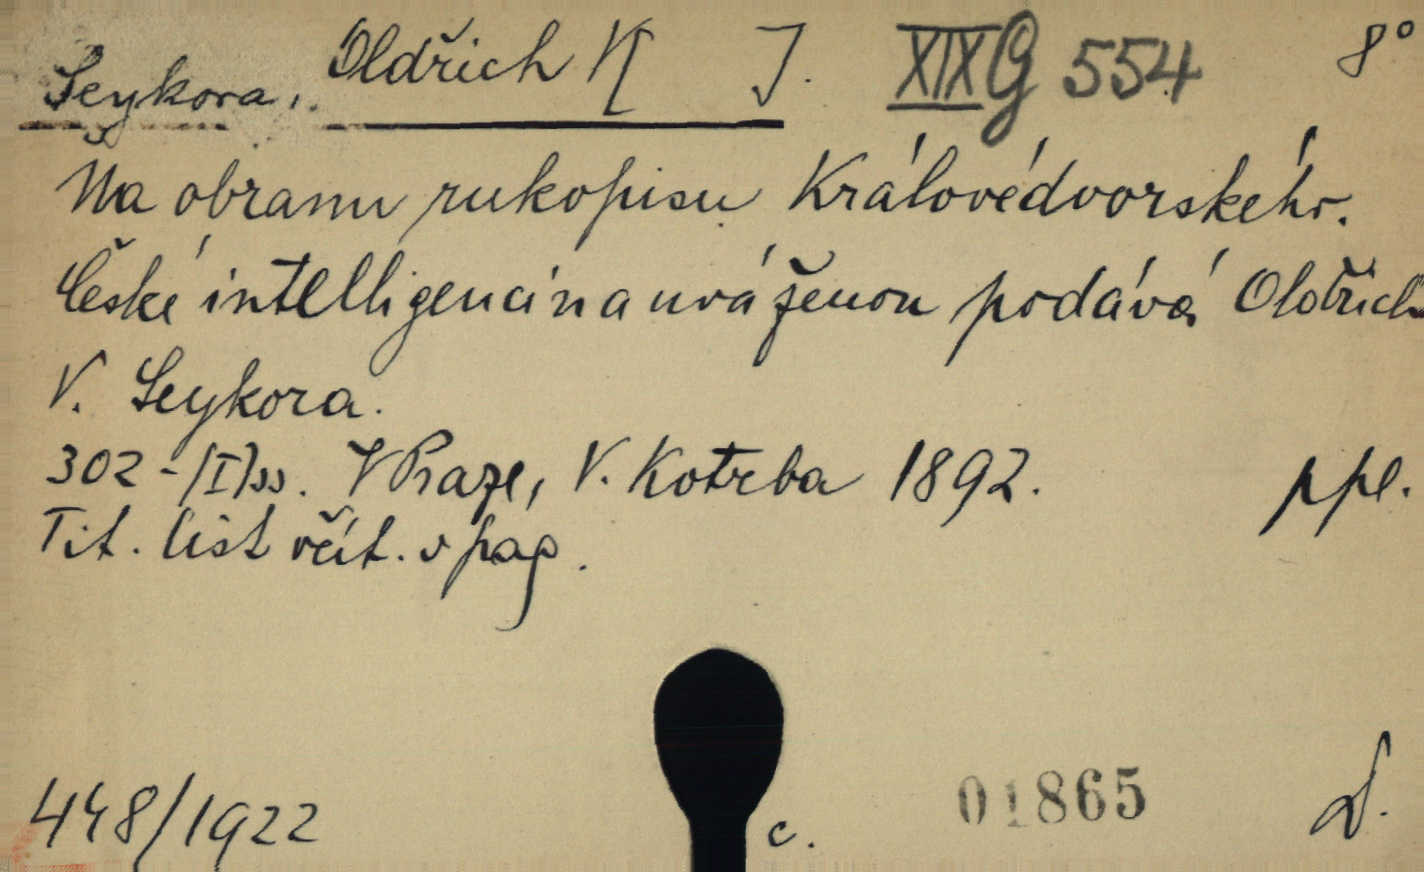 Seykora, Oldřich V. J. XIX G 554 8°
Na obranu rukopisu Královédvorského.
České intelligenci na uváženou podává Oldřich
V. Seykora.
302 - [I] ss. V Praze, V. Kotrba 1892. ppl.
Tit. list včít. v pag.
448/1922 c. 01865 D.